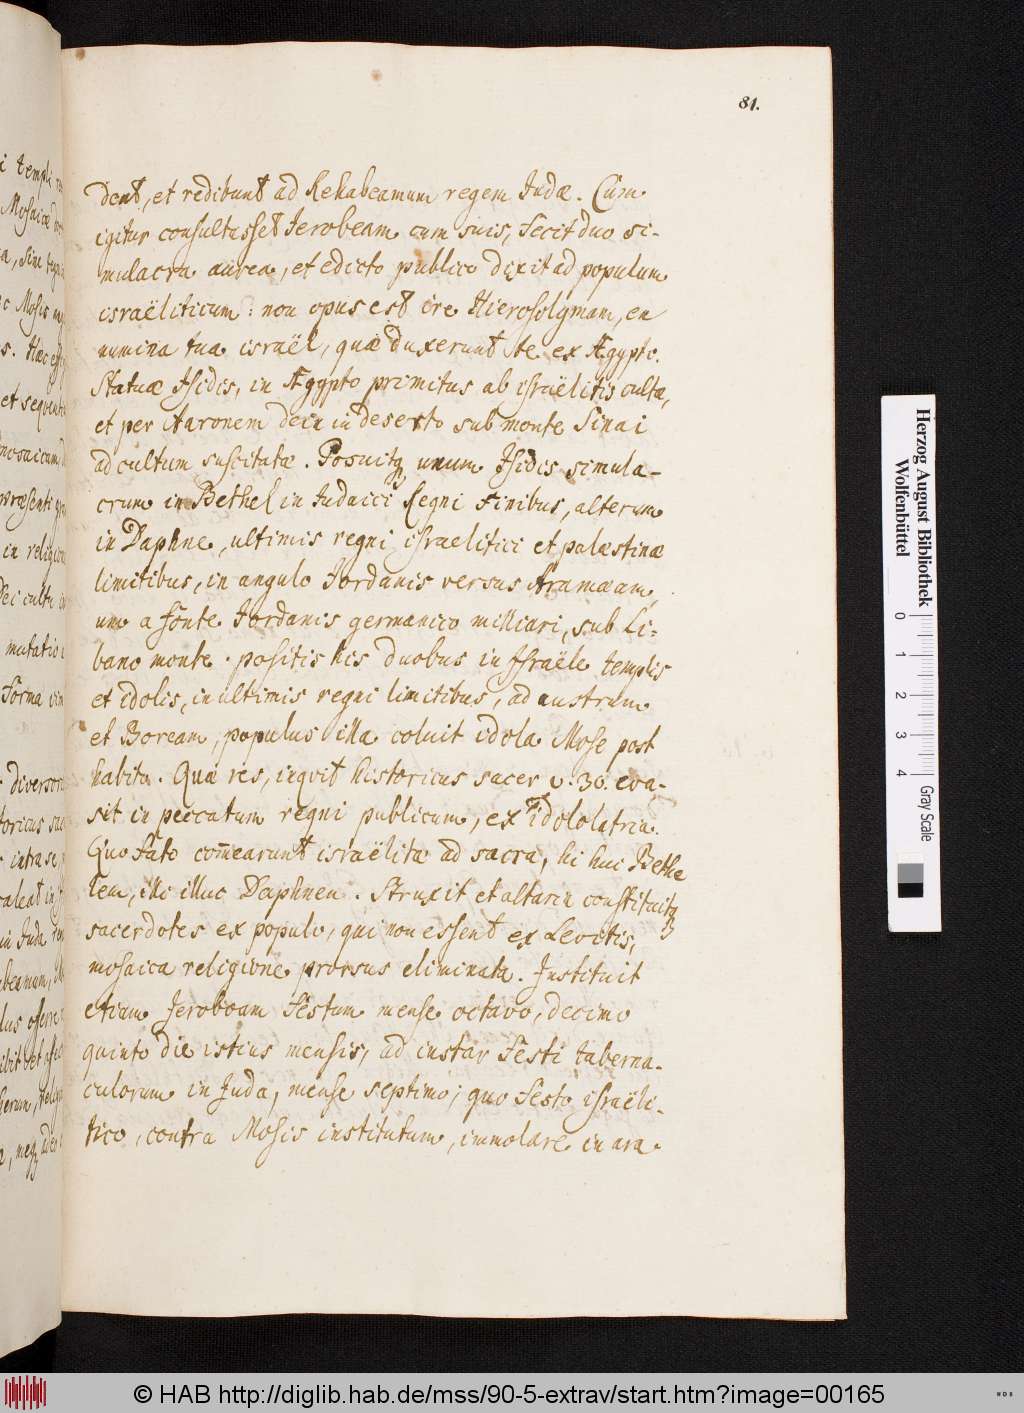 81.
dent, et redibunt ad Rehabeamum regem Judæ. Cum
igitur consultasset Jerobeam cum suis, fecit duo si-
mulacra aurea, et edicto publico dixit ad populum
israëliticum: non opus est ire Hierosolymam, en
numina tua israël, quæ duxerunt te ex Ægypto.
Statuæ Isidis, in Ægypto primitus ab israëlitis cultæ,
et per Aaronem dein in deserto sub monte Sinai
ad cultum suscitatæ. Posuitq unum Isidis simula-
crum in Bethel in Judaici Regni finibus, alterum
in Daphne, ultimis regni israelitici et palæstinæ
limitibus, in angulo Jordanis versus Aramæam,
uno a fonte Jordanis germanico milliari, sub Li-
bano monte. positis his duobus in Israële templis
et idolis, in ultimis regni limitibus, ad austrum
et Boream, populus illa coluit idola Mose post
habito. Quæ res, inquit historicus sacer v. 30. eva-
sit in peccatum regni publicum, ex idololatria.
Quo facto com̄earunt israëlitæ ad sacra, hi huc Bethe
lem, illi illuc Daphnen. Struxit et altaria constituitq
sacerdotes ex populo, qui non essent ex Levitis,
mosaica religione prorsus eliminata. Instituit
etiam Jeroboam festum mense octavo, decimo
quinto die istius mensis, ad instar festi taberna-
culorum in Juda, mense septimo; quo festo israëli-
tico, contra Mosis institutum, immolare in ara
Herzog August Bibliothek
Wolfenbüttel
0 1 2 3 4
Gray Scale
© HAB http://diglib.hab.de/mss/90-5-extrav/start.htm?image=00165